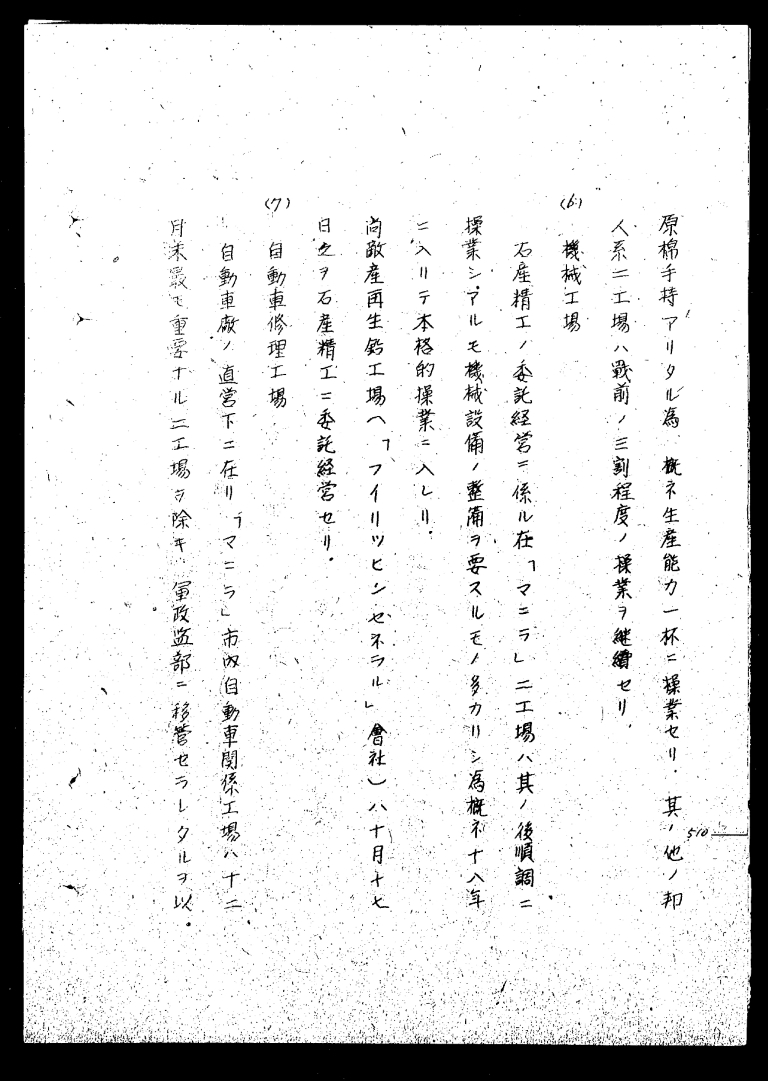 原棉手持アリタル為概ネ生産能力一杯ニ操業セリ．其ノ他ノ邦
人系二工場ハ戰前ノ三割程度ノ操業ヲ継續セリ．
(6) 機械工場
石産精工ノ委託経営ニ係ル在「マニラ」二工場ハ其ノ後順調ニ
操業シアルモ機械設備ノ整備ヲ要スルモノ多カリシ為概ネ十八年
ニ入リテ本格的操業ニ入レリ．
尚敵産再生鉛工場ヘ「フイリツピンゼネラル」會社）ハ十月十七
日之ヲ石産精工ニ委託経営セリ．
(7) 自動車修理工場
自動車廠ノ直営下ニ在リ「マニラ」市内自動車関係工場ハ十二
月末最モ重要ナル二工場ヲ除キ軍政監部ニ移管セラレタルヲ以．
510